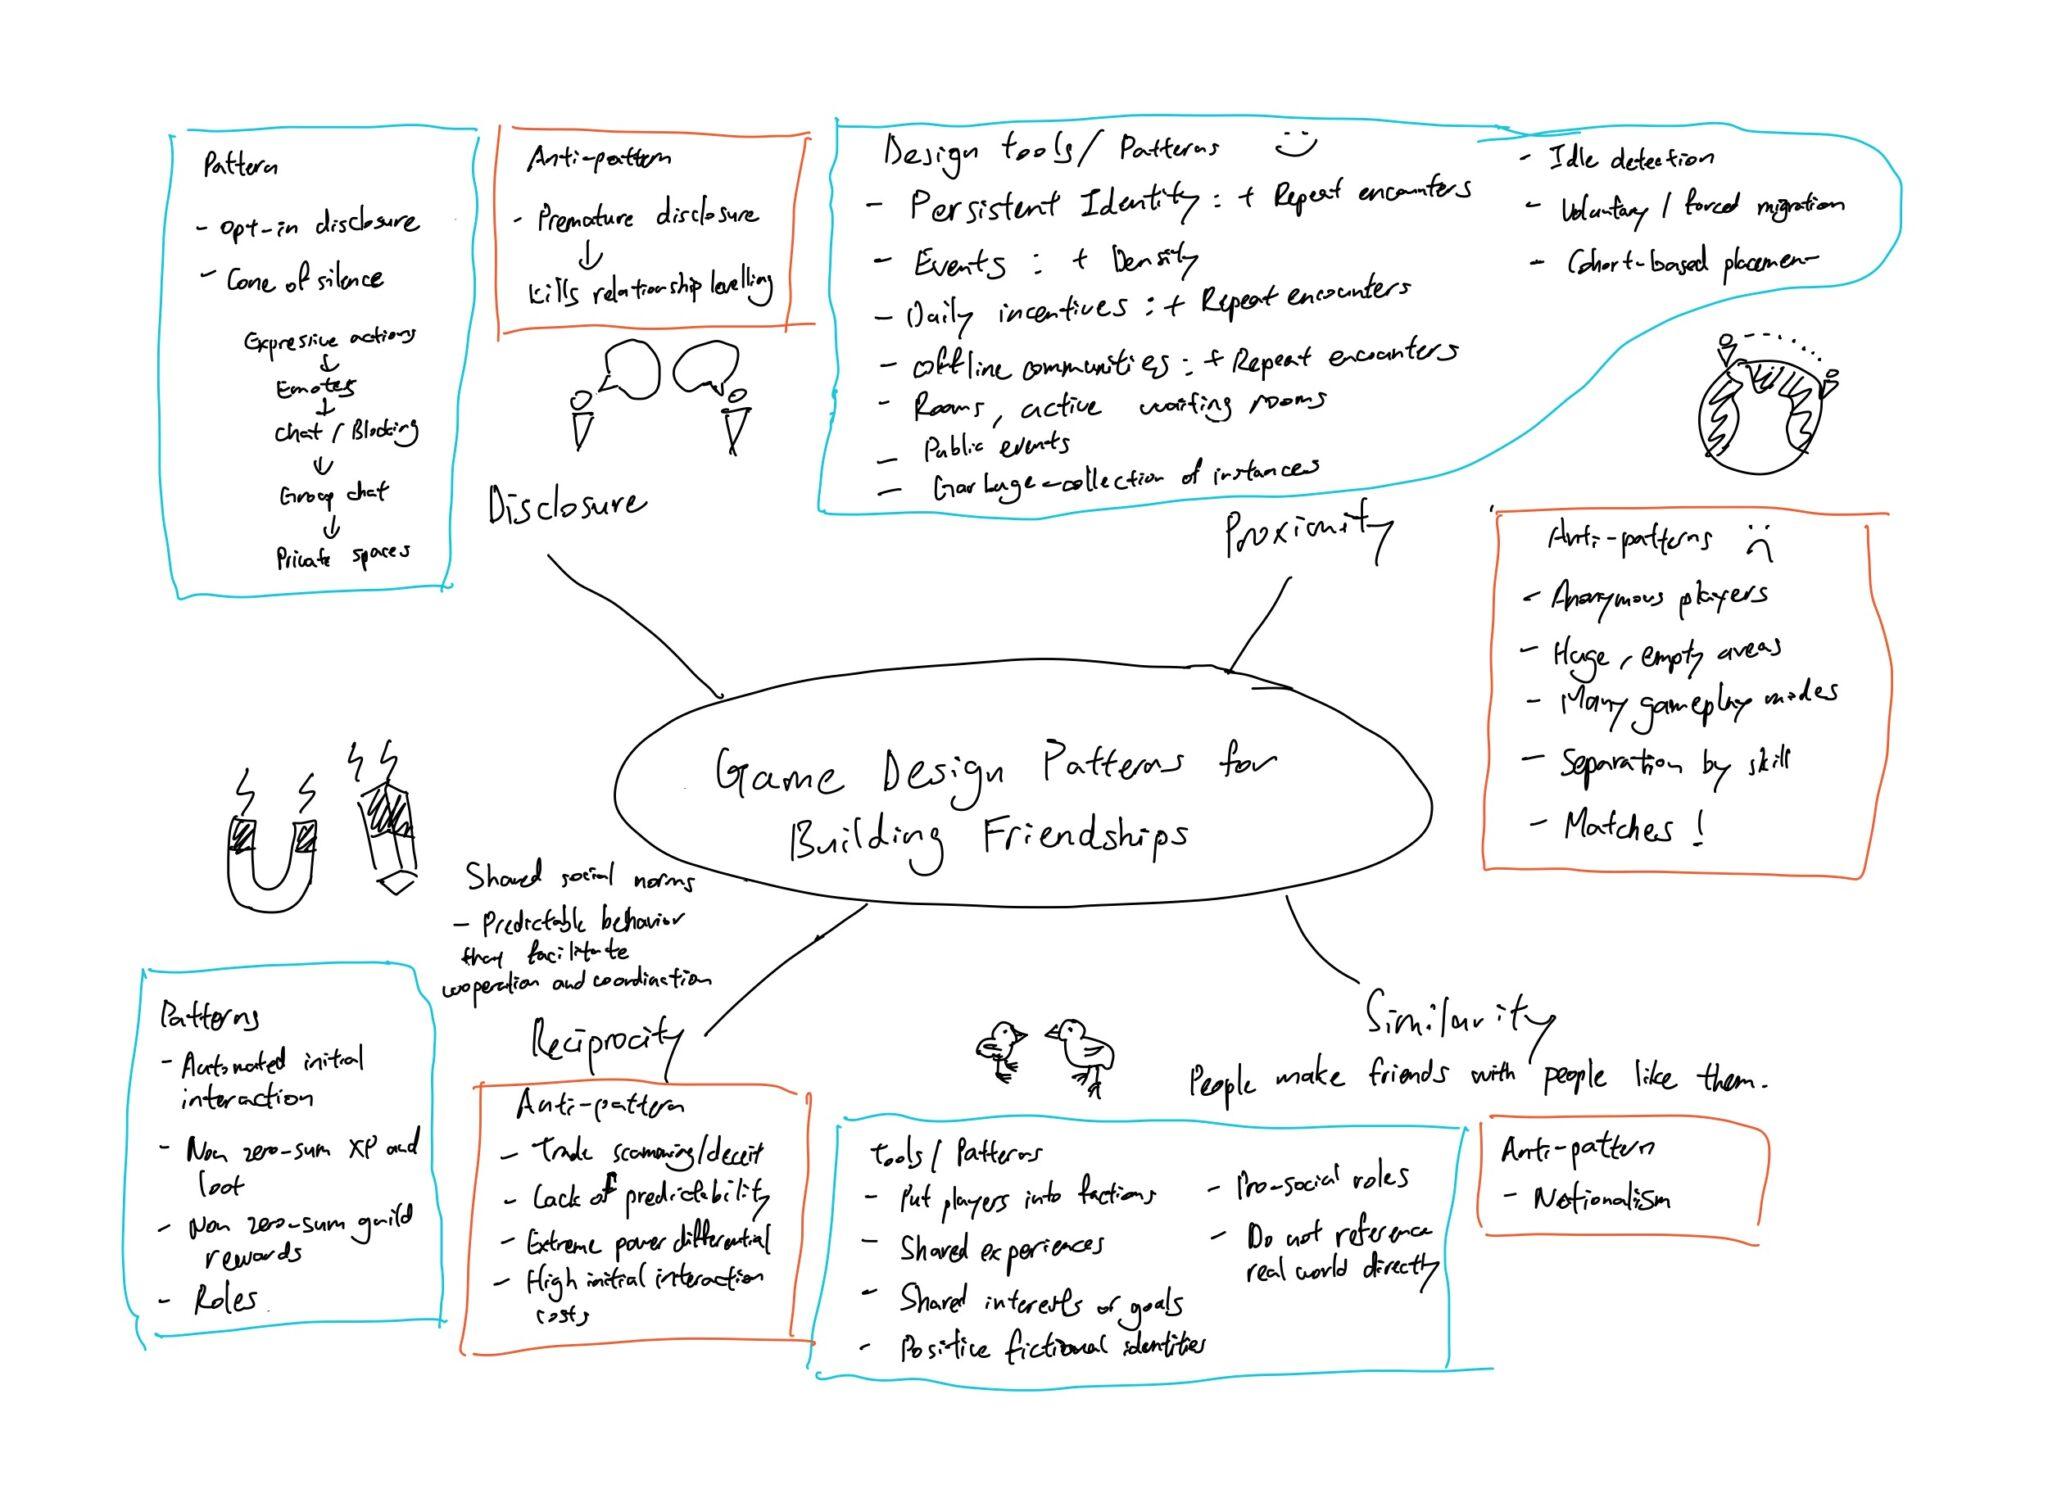 Pattern
- Opt-in disclosure
- Cone of silence
Expressive actions
↓
Emotes
↓
Chat / Blocking
↓
Group chat
↓
Private spaces
Anti-pattern
- Premature disclosure
↓
Kills relationship levelling
Disclosure
Design tools / Patterns
- Persistent Identity : + Repeat encounters
- Events : + Density
- Daily incentives : + Repeat encounters
- Offline communities : + Repeat encounters
- Rooms, active waiting rooms
- Public events
- Garbage-collection of instances
- Idle detection
- Voluntary / forced migration
- Cohort-based placement
Proximity
Anti-patterns
- Anonymous players
- Huge, empty areas
- Many gameplay modes
- Separation by skill
- Matches !
Game Design Patterns for
Building Friendships
Shared social norms
- Predictable behavior
that facilitate
cooperation and coordination
Reciprocity
Patterns
- Automated initial
interaction
- Non zero-sum XP and
loot
- Non zero-sum guild
rewards
- Roles
Anti-pattern
- Trade scamming/deceit
- Lack of predictability
- Extreme power differential
- High initial interaction
costs
Similarity
People make friends with people like them.
Tools / Patterns
- Put players into factions
- Shared experiences
- Shared interests or goals
- Positive fictional identities
- Pro-social roles
- Do not reference
real world directly
Anti-pattern
- Nationalism